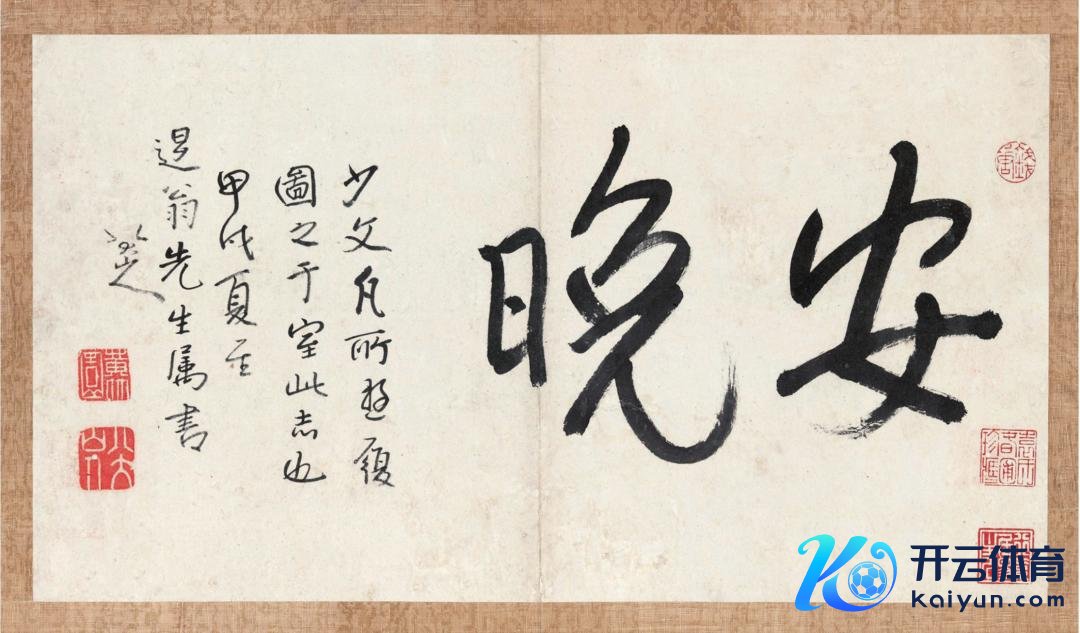 安晚
少文凡所遊履
圖之于室此志也
甲戌夏至
退翁先生属書
八大山人
开云体育
Kaiyun.com